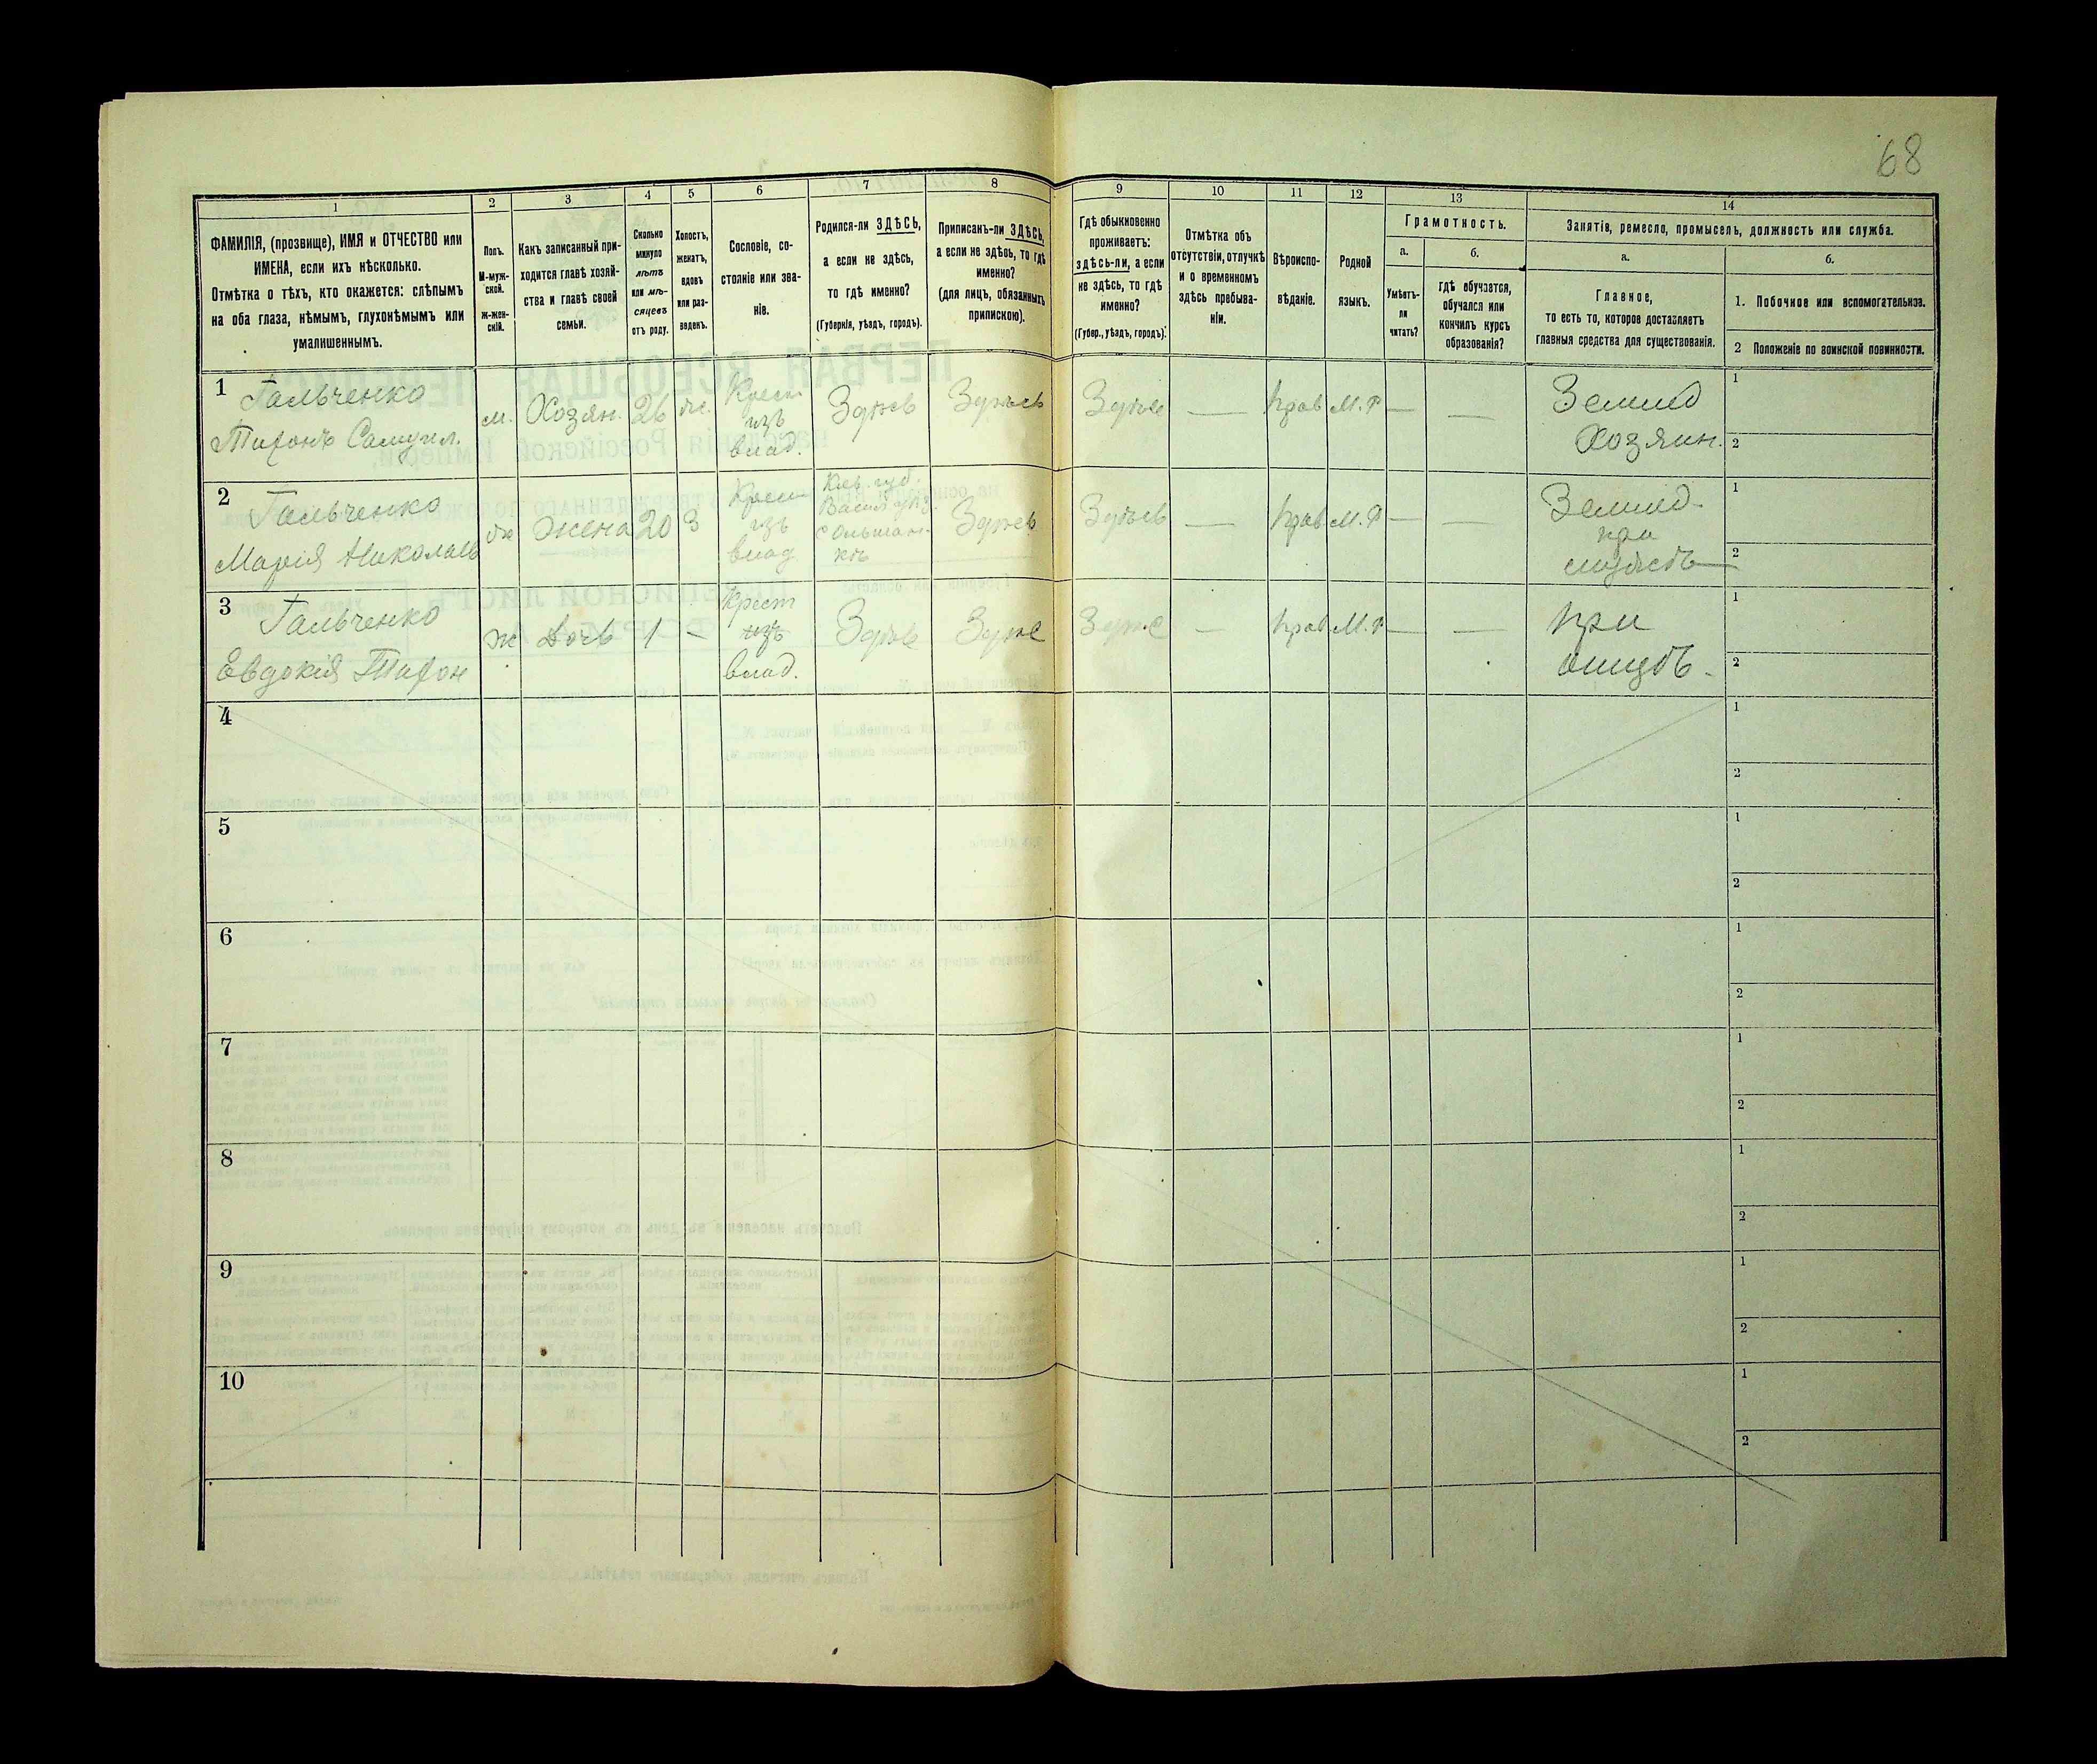 68
1 2 3 4 5 6 7 8 9 10 11 12 13 14
ФАМИЛІЯ, (прозвище), ИМЯ и ОТЧЕСТВО или
ИМЕНА, если ихъ нѣсколько.
Отмѣтка о тѣхъ, кто окажется: слѣпымъ
на оба глаза, нѣмымъ, глухонѣмымъ или
умалишеннымъ.
Полъ.
М-муж-
ской.
ж-жен-
скій.
Какъ записанный при-
ходится главѣ хозяй-
ства и главѣ своей
семьи.
Сколько
минуло
лѣтъ
или мѣ-
сяцевъ
отъ роду.
Холостъ,
женатъ,
вдовъ
или раз-
веденъ.
Сословіе, со-
стояніе или зва-
ніе.
Родился-ли ЗДѢСЬ,
а если не здѣсь,
то гдѣ именно?
(Губернія, уѣздъ, городъ).
Приписанъ-ли ЗДѢСЬ,
а если не здѣсь, то гдѣ
именно?
(для лицъ, обязанныхъ
припискою).
Гдѣ обыкновенно
проживаетъ:
здѣсь-ли, а если
не здѣсь, то гдѣ
именно?
(Губер., уѣздъ, городъ).
Отмѣтка объ
отсутствіи, отлучкѣ
и о временномъ
здѣсь пребыва-
ніи.
Вѣроиспо-
вѣданіе.
Родной
языкъ.
Грамотность.
а.
Умѣетъ-
ли
читать?
б.
гдѣ обучается,
обучался или
кончилъ курсъ
образованія?
Занятіе, ремесло, промыселъ, должность или служба.
а.
Главное,
то есть то, которое доставляетъ
главныя средства для существованія.
б.
1. Побочное или вспомогательное.
2 Положеніе по воинской повинности.
1 Гальченко
Тифонъ Самуил.
м. Хозян. 26 ж. Крест
изъ
влад.
Здѣсь Здѣсь Здѣсь — Прав М. Р — —
Землед
Хозяин.
1
2
2 Гальченко
Марія Николаев
ж Жена 20 З Крест
изъ
влад
Кіев. губ.
Васил. у.
с Ольшан-
кѣ
Здѣсь Здѣсь — Прав М. Р — —
Землед.
при
мужѣ
1
2
3 Гальченко
Евдокія Тифон
ж Дочь 1 — Крест
изъ
влад.
Здѣсь Здѣсь Здѣсь — Прав М. Р — —
При
отцѣ.
1
2
4
1
2
5
1
2
6
1
2
7
1
2
8
1
2
9
1
2
10
1
2